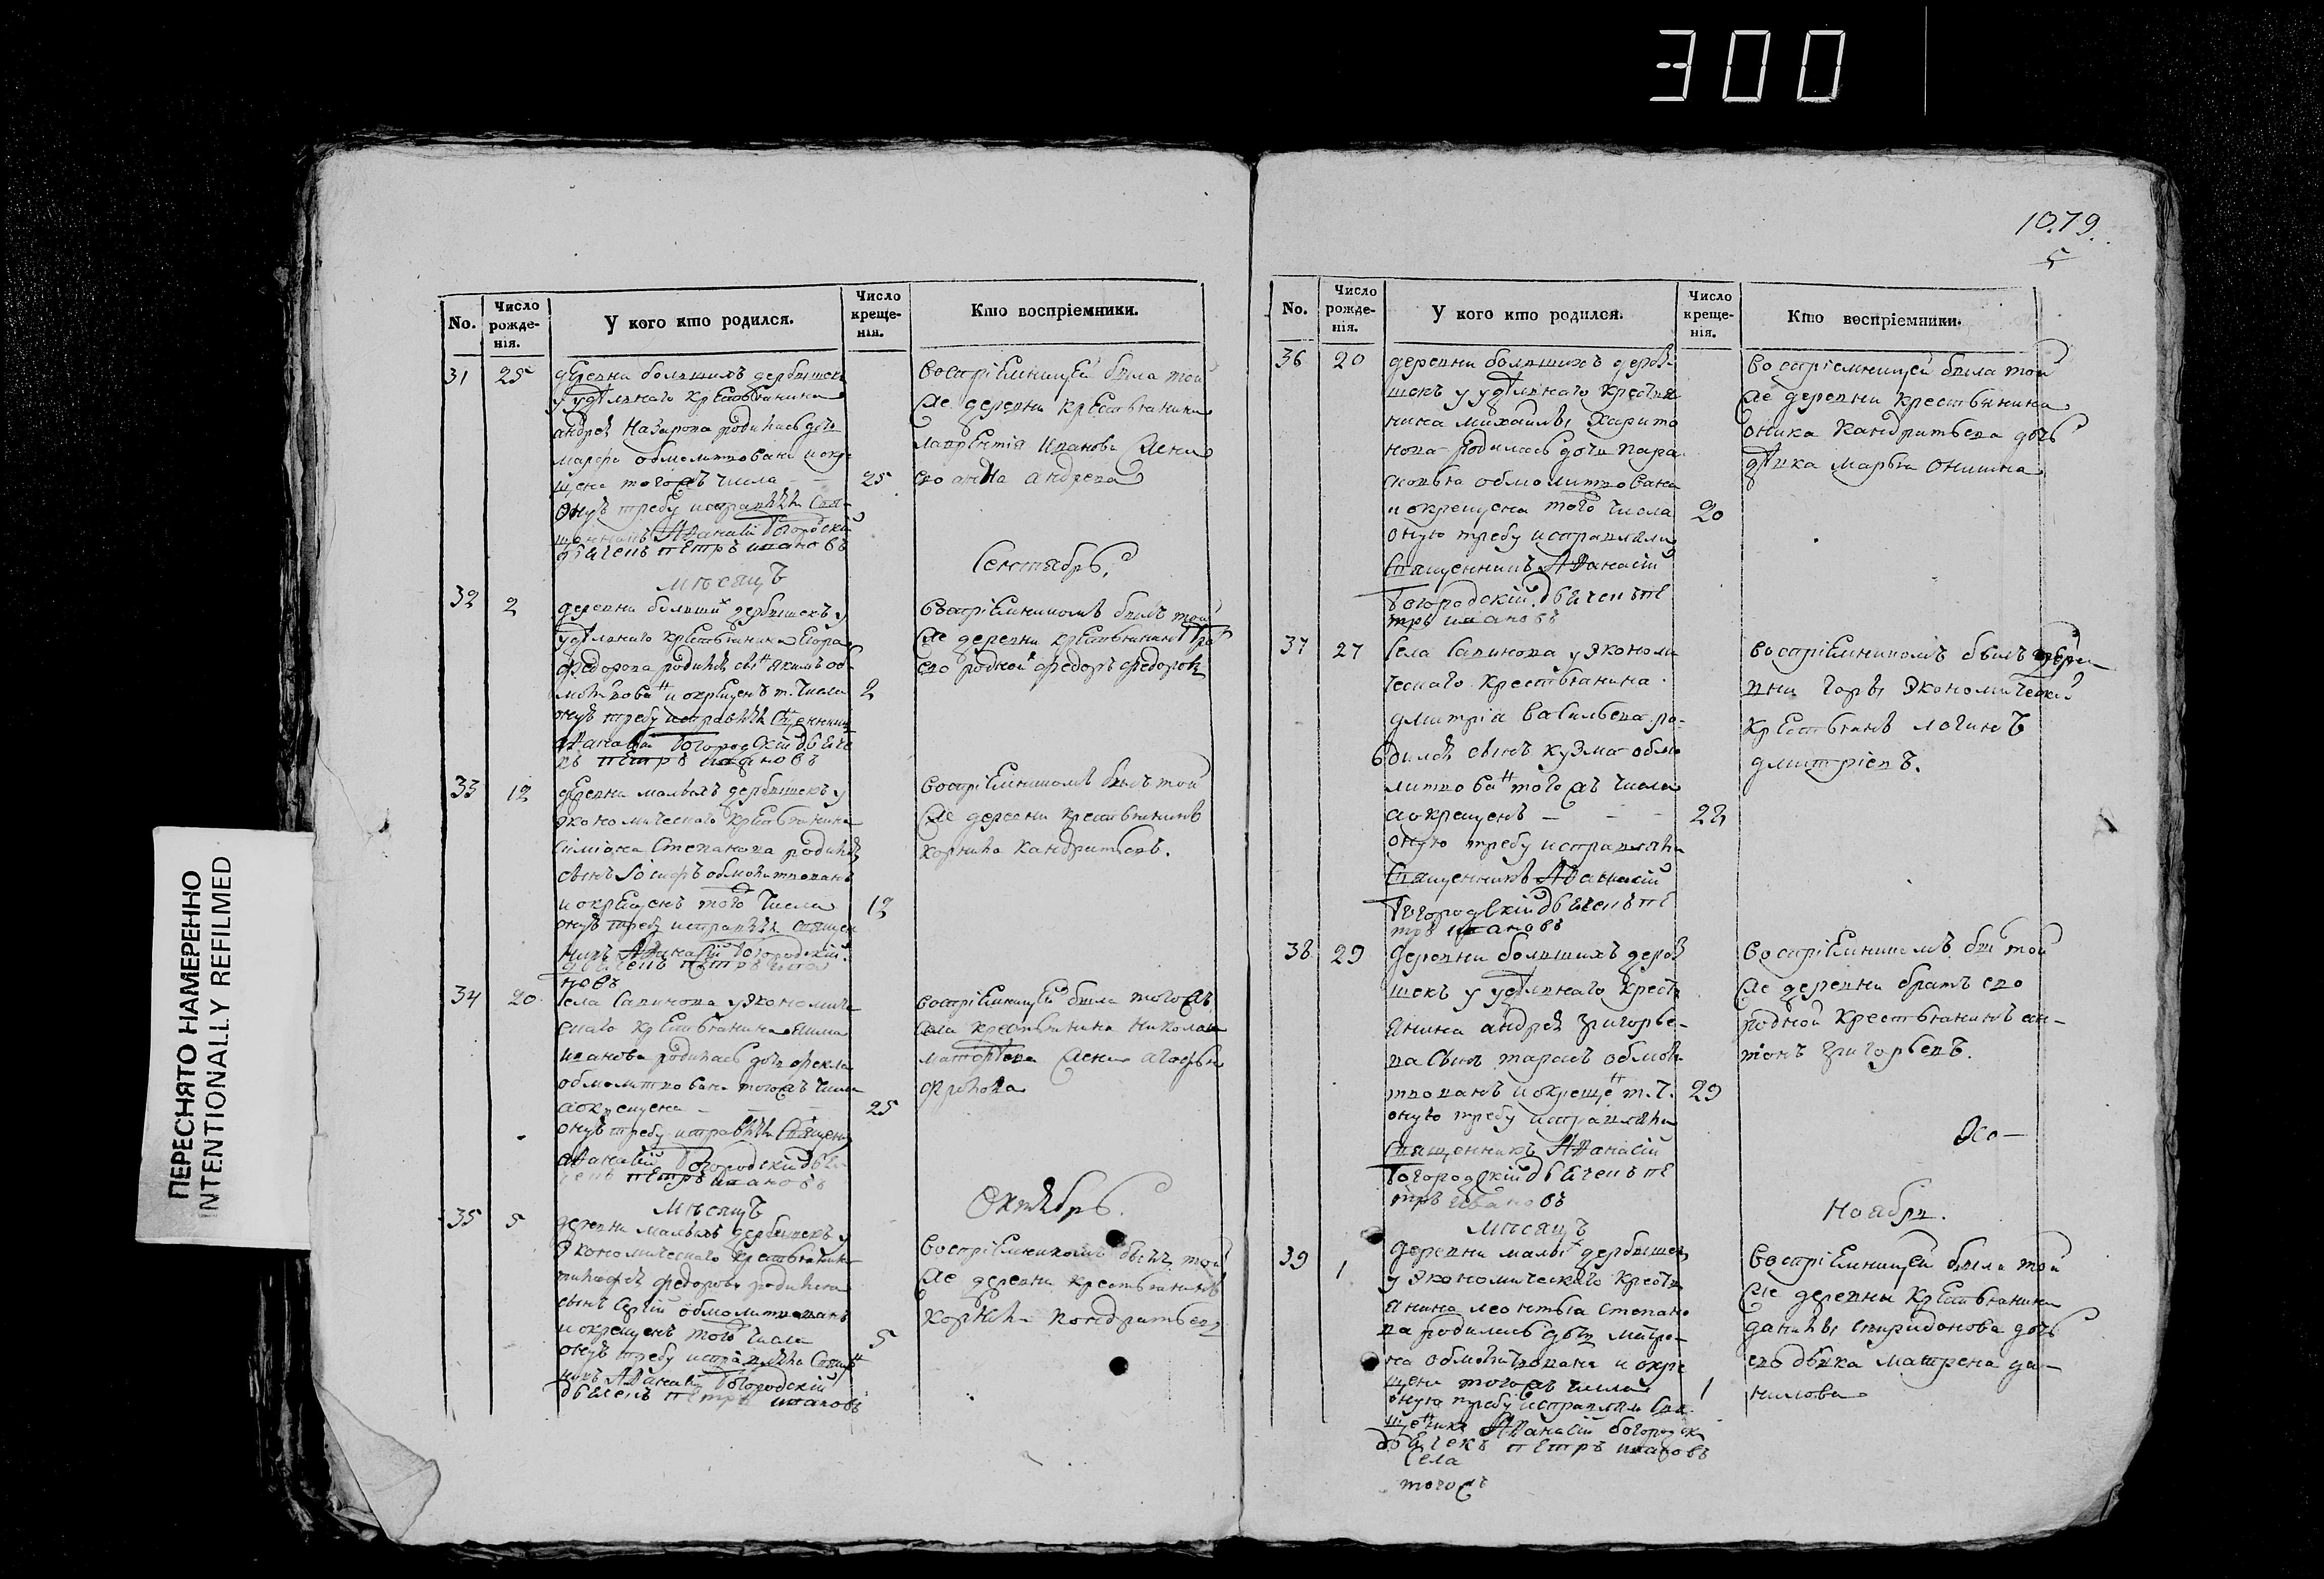 300
1079.
5
ПЕРЕСНЯТО НАМЕРЕННО
INTENTIONALLY REFILMED
No.
Число рожде-нія.
У кого кто родился.
Число креще-нія.
Кто воспріемники.
31
25
деревни большихъ дербышекъ
у удѣльнаго крестьянина
андрея Назарова родилась дочь
марфа обмолитвована и окре
щена тогожъ числа
25
онуъ требу исправляли Свя-
щенникъ Афанасій Богородскій
дьячекъ петръ ивановъ
воспріемницей была той
же деревни крестьянина
лаврентія Иванова жена
ево анна андрева
мѣсяцъ
Сентябрь.
32
2
деревни больши дербышекъ у
удѣльнаго крестьянина Егора
федорова родился сынъ якимъ об-
и окрещенъ т. числа
2
онуъ требу исправляли
афанасій Богородскій дьяче
къ петръ ивановъ
воспріемникомъ былъ той
же деревни крестьянинъ
ево родной федоръ федоровъ
33
12
деревни малыхъ дербышекъ у
экономическаго крестьянина
симіона Степанова родился
сынъ обмолитвованъ
и окрещенъ того числа
12
онуъ требу исправляли Священ
никъ Афанасій Богородскій
дьячекъ петръ ива
новъ
воспріемникомъ былъ той
же деревни крестьянинъ
корнила кандратьевъ.
34
20
Села Савинова у экономиче
скаго крестьянина
иванова родилась дочь фекла
обмолитвована тогожъ числа
аокрещена
25
онуъ требу исправляли Священ
афанасій Богородскій дья
чекъ петръ ивановъ
воспріемницей была тогожъ
села крестьянина николая
жена агафья
мѣсяцъ
Октябрь.
35
5
деревни малыхъ дербышекъ у
экономическаго крестьянина
федорова родился
сынъ сергій обмолитвованъ
и окрещенъ того числа
5
онуъ требу исправляли Священ
никъ Афанасій Богородскій
дьячекъ петръ ивановъ
воспріемникомъ былъ той
же деревни крестьянинъ
корнила кондратьевъ
No.
Число рожде-нія.
У кого кто родился.
Число креще-нія.
Кто воспріемники.
36
20
деревни большихъ дербы-
шекъ у удѣльнаго крестья
нина михаилы Харито
нова родилась дочь пара
сковья обмолитвована
и окрещена того числа
20
оную требу исправляли
Священникъ Афанасій
Богородскій дьячекъ пе
тръ ивановъ
воспріемницей была той
же деревни крестьянина
оника кандратьева дочь
дѣвка марья онишна
37
27
Села Савинова у экономи
ческаго крестьянина
дмитріа васильева ро-
дился сынъ кузма обмо
литвованъ тогожъ числа
аокрещенъ
28
оную требу исправляли
Священникъ Афанасій
Богородскій дьячекъ пе
тръ ивановъ
воспріемникомъ былъ дере
вни горы экономическій
крестьянинъ логинъ
дмитріевъ.
38
29
деревни большихъ дербы
шекъ у удѣльнаго кресть
янина андрея григорье-
ва сынъ тарасъ обмоли
твованъ и окреще т. ч.
29
оную требу исправляли
Священникъ Афанасій
Богородскій дьячекъ пе
тръ ивановъ
воспріемникомъ бы той
же деревни братъ ево
родной крестьянинъ ан-
тонъ григорьевъ.
мѣсяцъ
Ноябрь.
39
1
деревни малы дербышекъ
у экономическаго кресть
янина леонтьа степано
ва родилась дочь матре-
на обмолитвована и окре
щена тогожъ числа
1
оную требу исправляли Свя
щенникъ Афанасій богородск
дьячекъ петръ ивановъ
воспріемницей была той
же деревни крестьянина
данилы спиридонова дочь
ево дѣвка матрена да-
нилова
Села
тогожъ